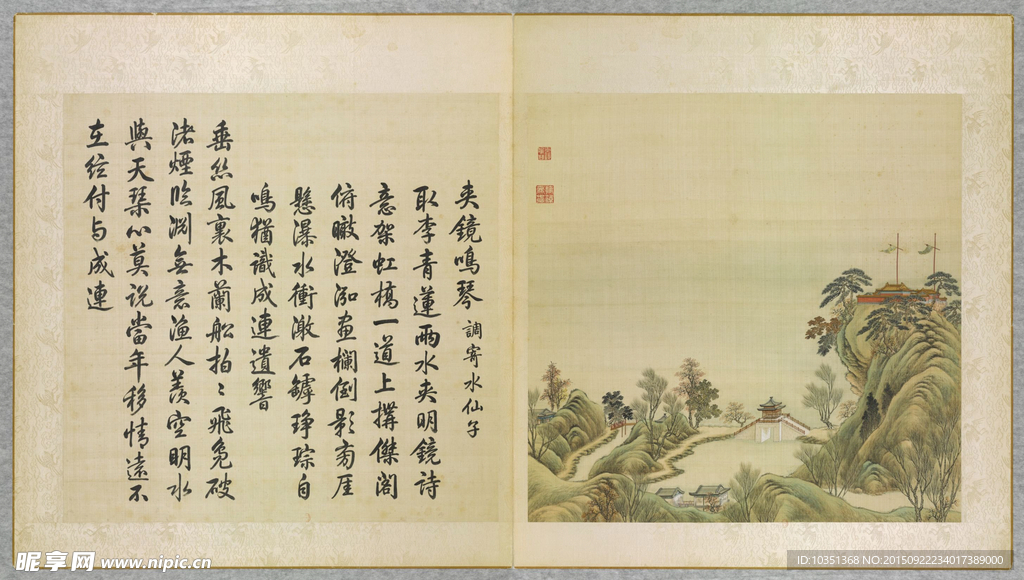 夹鏡鳴琴 調寄水仙子
取李青蓮兩水夹明鏡詩
意架虹橋一道上搆傑閣
俯瞰澄泓畫欄倒影旁厓
懸瀑水衝激石罅琤琮自
鳴猶識成連遺響
垂絲風裏木蘭船拍〻飛鳧破
渚煙臨淵無意漁人羨空明水
與天琴心莫說當年移情遠不
在絃付与成連
昵享网 www.nipic.cn
ID:10351368 NO:20150922234017389000